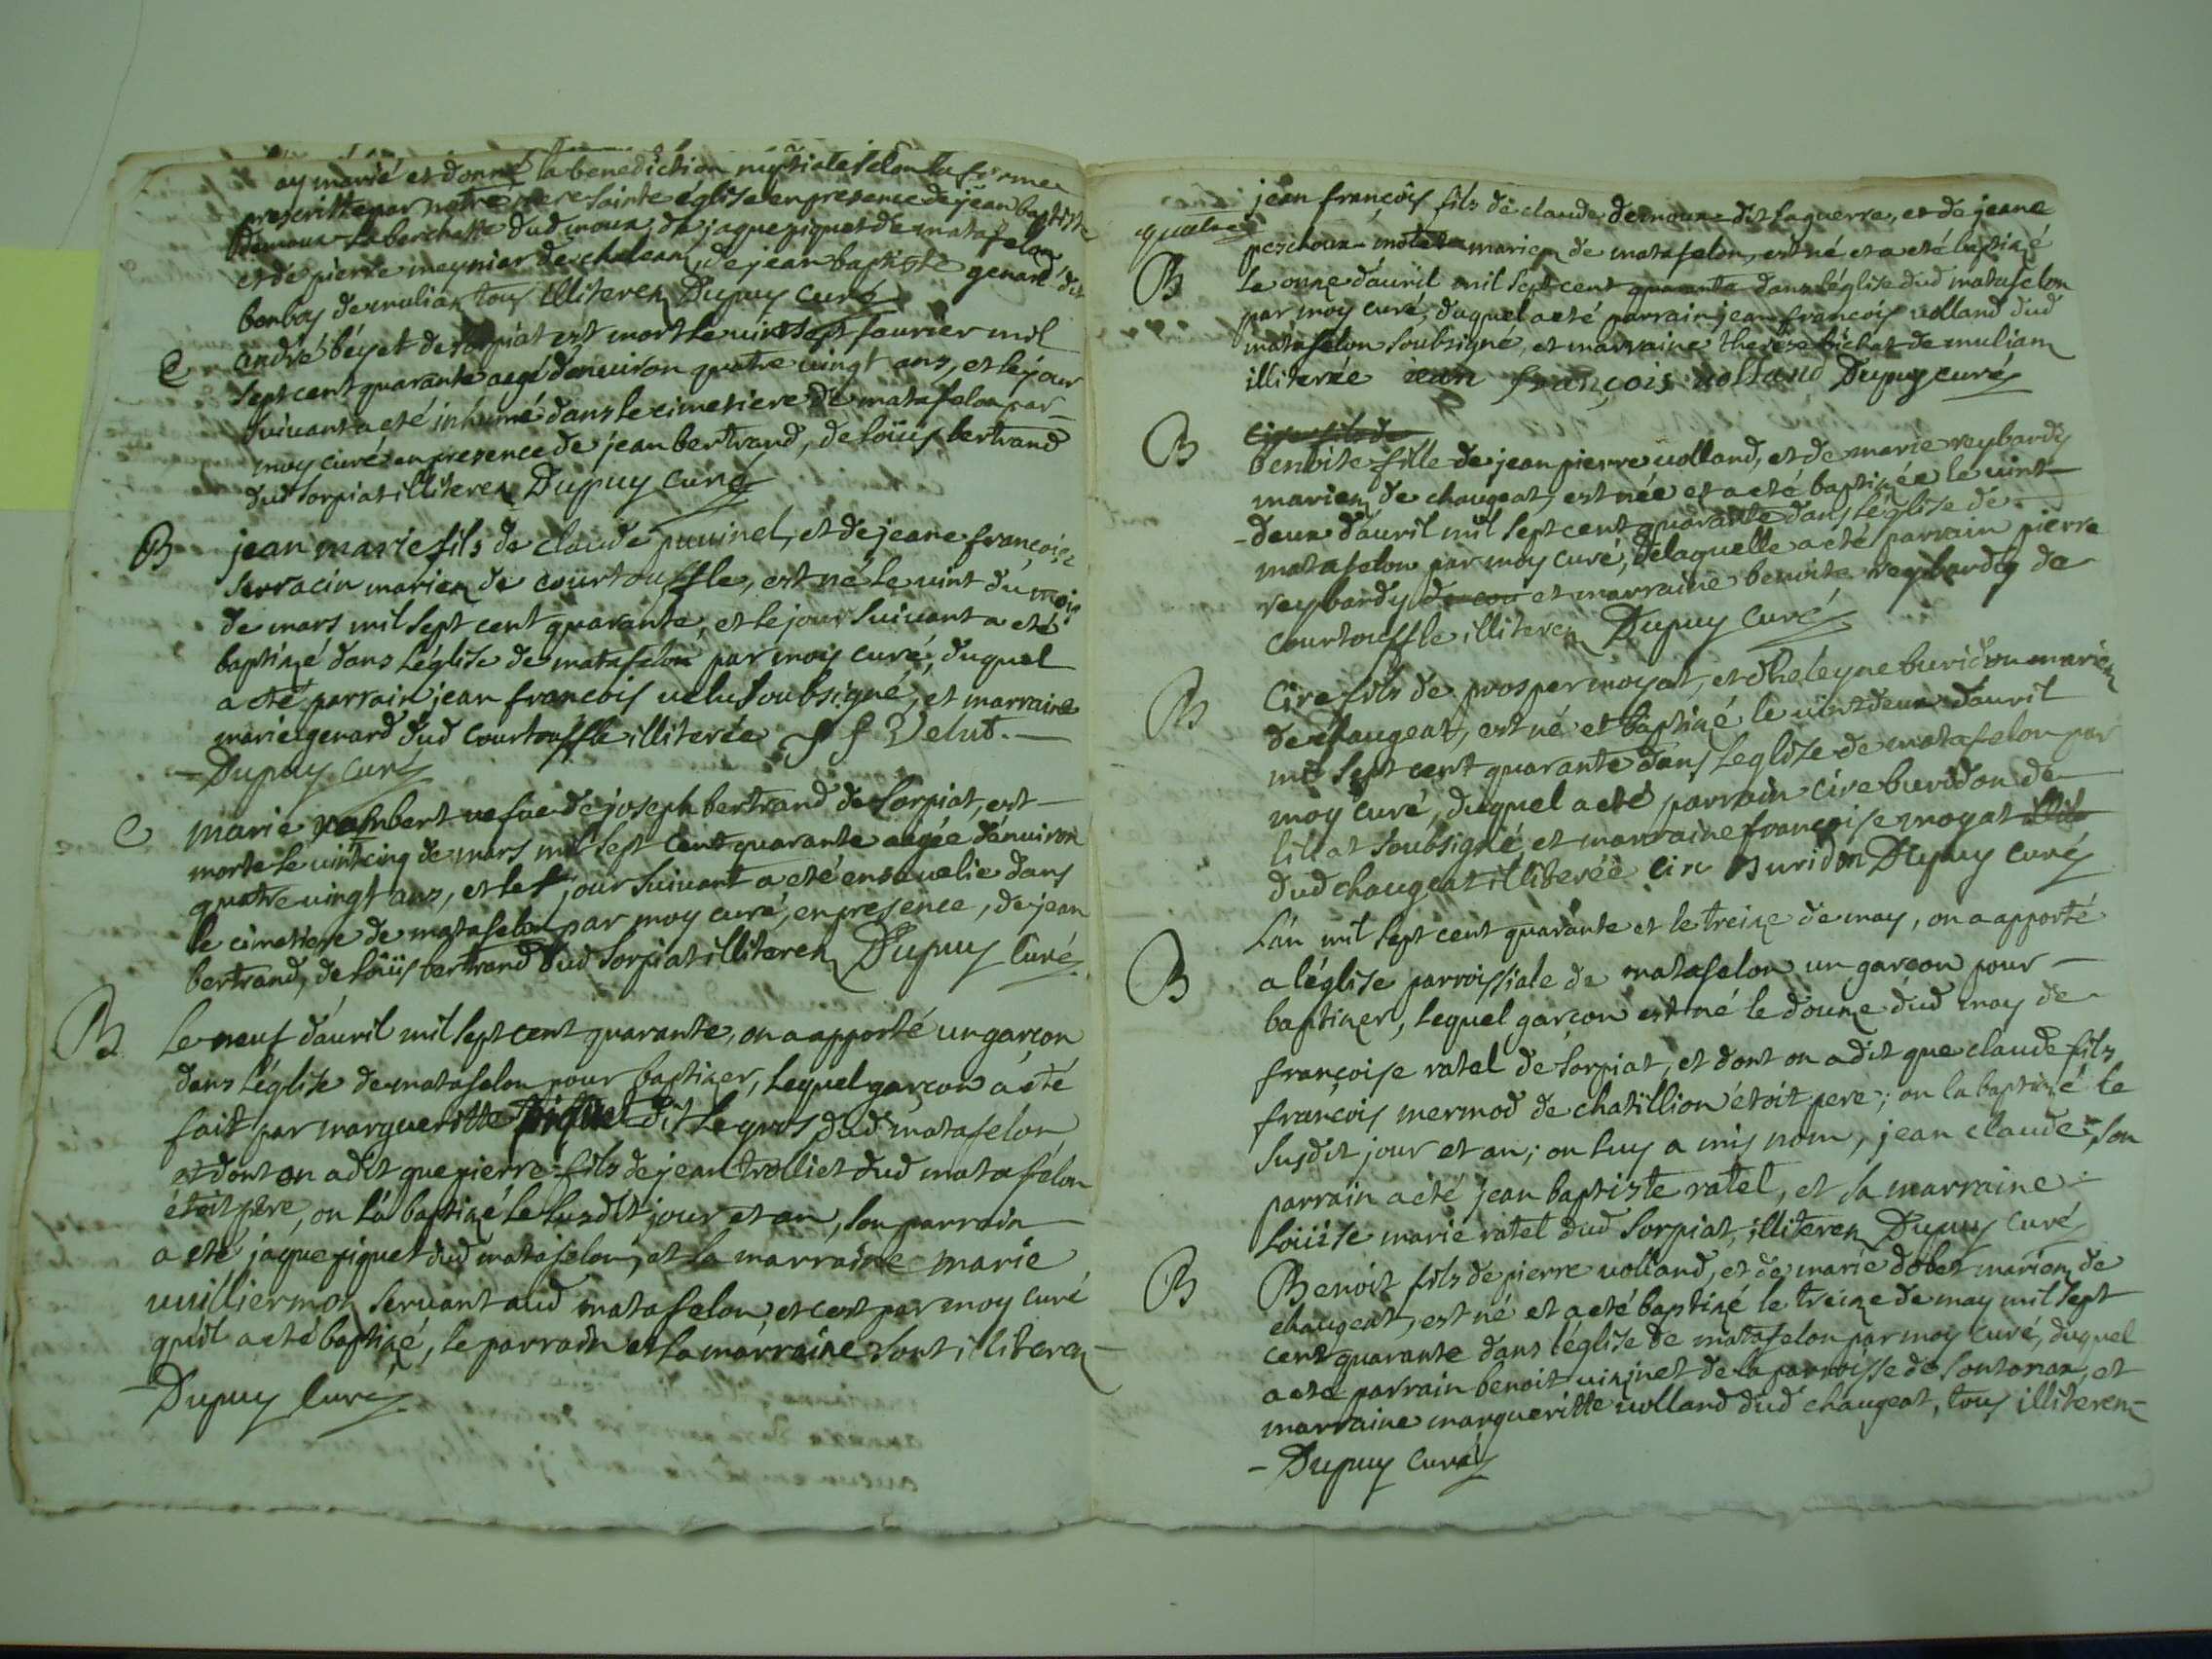 ay marié et donné la benediction nuptiale selon la forme
prescritte par notre mere sainte église en presence de jean baptiste
demoux laberchatte dud moux, de jaque piquet de matafelon
et de pierre meynier de chaleam, de jean baptiste genard dit
bonboy de mulian tous illiterez Dupuy curé
C
andré béyet de sorpiat est mort le vint sept feurier mil
sept cent quarante aagé d'enuiron quatre uingt ans, et le jour
suiuant a eté inhumé dans le cimetiere de matafelon par
moy curé en presence de jean bertrand, de loüis bertrand
dud sorpiat illiterez Dupuy curé
B
jean marie fils de claude puuinel, et de jeane françoise
serracin mariez de courtouffle, est né le uint du mois
de mars mil sept cent quarante, et le jour suiuant a eté
baptizé dans l'église de matafelon par moy curé, duquel
a eté parrain jean francois uelut soubsigné, et marraine
marie genard dud courtouffle illiterée J f Velut.
Dupuy curé
C
marie jambert uefue de joseph bertrand de sorpiat, est
morte le uint cinq de mars mil sept cent quarante aagée d'enuiron
quatre uingt ans, et le jour suiuant a eté enseuelie dans
le cimetiere de matafelon par moy curé, en presence, de jean
bertrand, de loüis bertrand dud sorpiat illiterez Dupuy Curé
B
Le neuf d'auril mil sept cent quarante, on a apporté un garçon
dans l'église de matafelon pour baptizer, lequel garçon a eté
fait par margueritte piquet dit Legros dud matafelon
et dont on a dit que pierre fils de jean trolliet dud matafelon
étoit pere, on l'a baptizé le susdit jour et an, son parrain
a eté jaque piquet dud matafelon, et sa marraine marie
uuilliermoz seruant aud matafelon, et c'est par moy curé
qu'il a eté baptizé, le parrain et la marraine sont illiterez
Dupuy Curé
quatre
B
jean françois fils de claude demoux dit laguerre, et de jeane
peschoux motet mariez de matafelon, est né et a eté baptizé
Le onze d'auril mil sept cent quarante dans l'église dud matafelon
par moy curé, duquel a eté parrain jean françois uolland dud
matafelon soubsigné, et marraine therese bichat de muliam
illiterée iean françois uolland Dupuy curé
B
Cire fils de
benoite fille de jean pierre uolland, et de marie reybardy
mariez de chaugeat, est née et a eté baptizée le uint
deux d'auril mil sept cent quarante dans l'église de
matafelon par moy curé, de laquelle a eté parrain pierre
reybardy de cou et marraine benoite reybardy de
courtouffle illiterez Dupuy Curé
B
Cire fils de prosper moyat, et d'heleyne buridon mariez
de chaugeat, est né et baptizé le uint deux d'auril
mil sept cent quarante dans l'eglise de matafelon par
moy curé, duquel a eté parrain cire buridon de
lillat soubsigné et marraine françoise moyat illite
dud chaugeat illiterée Cire Buridon Dupuy Curé
B
L'an mil sept cent quarante et le treize de may, on a apporté
a l'église parroissiale de matafelon un garçon pour
baptizer, lequel garçon est né le douze dud may de
françoise ratel de sorpiat, et dont on a dit que claude fils
françois mermod de chatillion étoit pere; on l'a baptizé le
susdit jour et an; on luy a mis nom, jean claude son
parrain a eté jean baptiste ratel, et sa marraine
Loüise marie ratel dud sorpiat, illiterez Dupuy Curé
B
Benoit fils de pierre uolland, et de marie dobet mariez de
chaugeat, est né et a eté baptizé le treize de may mil sept
cent quarante dans l'église de matafelon par moy curé, duquel
a eté parrain benoit uizinet de la parroisse de sontonax, et
marraine margueritte uolland dud chaugeat, tous illiterez
Dupuy curé